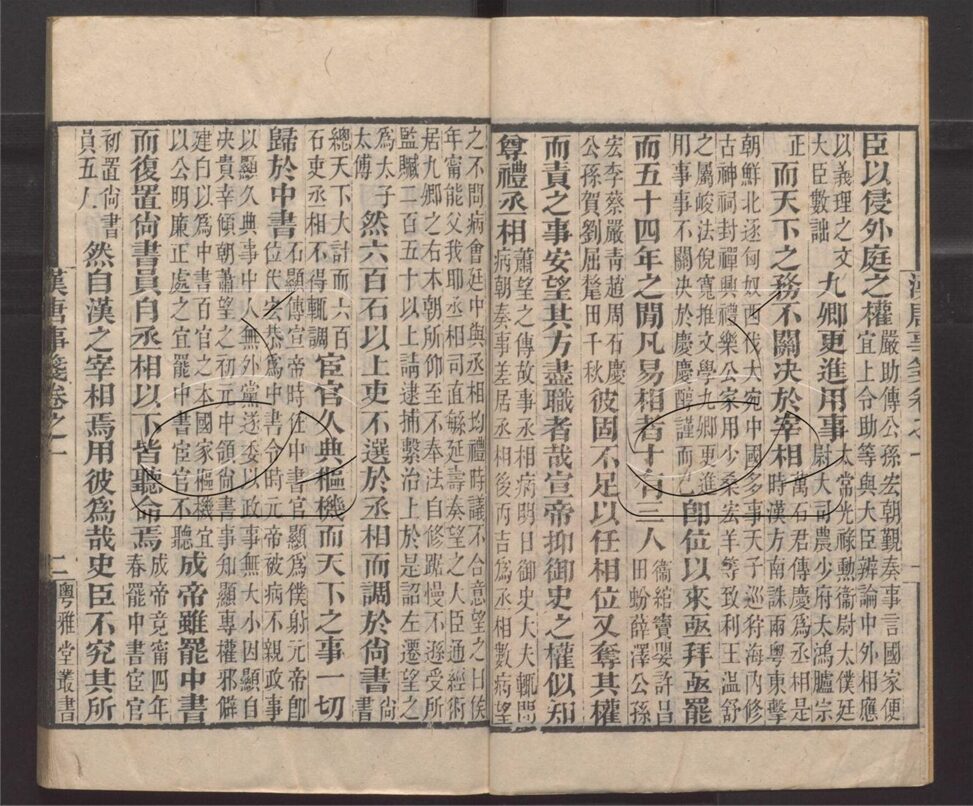 漢唐事箋卷之一
一
臣以侵外庭之權
嚴助傳公孫宏朝覲奏事言國家便
宜上令助等與大臣辨論中外相應
以義理之文
大臣數詘
九卿更進用事
太常光祿勳衞尉太僕廷
尉大司農少府太鴻臚宗
正
而天下之務不關决於宰相
萬石君傳慶爲丞相是
時漢方南誅兩粵東擊
朝鮮北逐匈奴西伐大宛中國多事天子巡狩海內修
古神祠封禪興禮樂公家用少桑宏羊等致利王温舒
之屬峻法倪寬推文學九卿更進
用事事不關决於慶慶醇謹而已
卽位以來亟拜亟罷
而五十四年之閒凡易相者十有三人
衞綰竇嬰許昌
田蚡薛澤公孫
宏李蔡嚴青趙周石慶
公孫賀劉屈氂田千秋
彼固不足以任相位又奪其權
而責之事安望其方盡職者哉宣帝抑御史之權似知
尊禮丞相
蕭望之傳故事丞相病明日御史大夫輒問
病朝奏事差居丞相後丙吉爲丞相數病望
之不問病會廷中與丞相均禮時議不合意望之曰侯
年甯能父我耶丞相司直緐延壽奏望之大臣通經術
居九卿之右本朝所仰至不奉法自修踞慢不遜受所
監贓二百五十以上請逮捕繫治上於是詔左遷望之
爲太子
太傅
然六百石以上吏不選於丞相而調於尙書
尙
書
總天下大計而六百
石吏丞相不得輒調
宦官久典樞機而天下之事一切
歸於中書
石顯傳宣帝時任中書官顯爲僕射元帝卽
位代宏恭爲中書令時元帝被病不親政事
以顯久典事中人無外黨遂委以政事無大小因顯白
决貴幸傾朝蕭望之初元中領尙書事知顯專權邪僻
建白以爲中書百官之本國家樞機宜
以公明廉正處之宜罷中書宦官不聽
成帝雖罷中書
而復置尙書員自丞相以下皆聽命焉
成帝竟甯四年
春罷中書宦官
初置尙書
員五人
然自漢之宰相焉用彼爲哉史臣不究其所
漢唐事箋卷之一
二
粵雅堂叢書